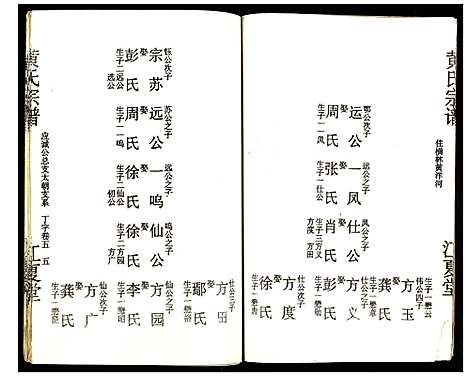 黄氏宗谱
住横林黄洋河
江夏堂
鄂公次子
运公
娶
周氏
生子一凤
运公之子
一凤
娶
张氏
生子一仕公
凤公之子
仕公
娶
肖氏
生子三方义
方度 方田
仕公四子
方玉
生子一懋云
仕公之子
方义
娶
彭氏
仕公次子
方度
娶
徐氏
黄氏宗谱
应诚公总支太朝支系 丁字卷五 五
江夏堂
钰公次子
宗苏
娶
彭氏
生子二远公
选公
苏公之子
远公
娶
周氏
生子一鸣
远公之子
一鸣
娶
徐氏
生子二仙公
鸣公之子
仙公
娶
徐氏
生子二方园
方广
仕公三子
方田
娶
鄢氏
仙公之子
方园
娶
李氏
仙公次子
方广
娶
龚氏